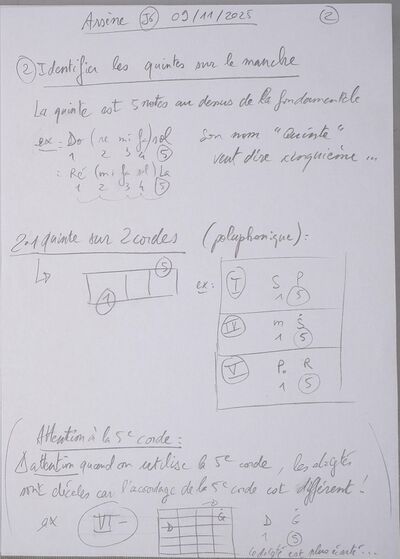 Arsène J6 09/11/2025 2
2 Identifier les quintes sur le manche
La quinte est 5 notes au dessus de la fondamentale
ex = Do (re mi fa) sol Son nom "Quinte"
1 2 3 4 5 veut dire cinquième ...
= Ré (mi fa sol) La
1 2 3 4 5
2.1 quinte sur 2 cordes (polyphonique) :
5
1
ex : I S P
1 5
IV m Ġ
1 5
V P. R
1 5
Attention à la 5e corde :
attention quand on utilise la 5e corde, les doigtés
sont décalés car l'accordage de la 5e corde est différent !
ex VI- D Ġ D Ġ
1 5
le doigté est plus écarté ...